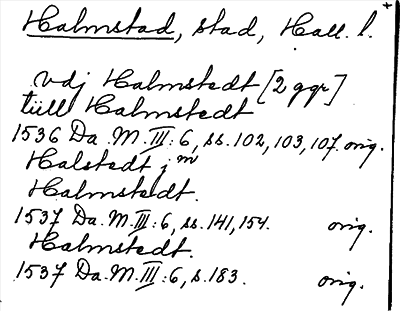 Halmstad, stad, Hall. l. +
vdj Halmstedt [2 ggr]
tiill Halmstedt
1536 Da. M. III:6, ss. 102, 103, 107. orig.
Halstedt j m
Halmstedt.
1537 Da. M. III:6, ss. 141, 154. orig.
Halmstedt.
1537 Da. M. III:6, s. 183. orig.